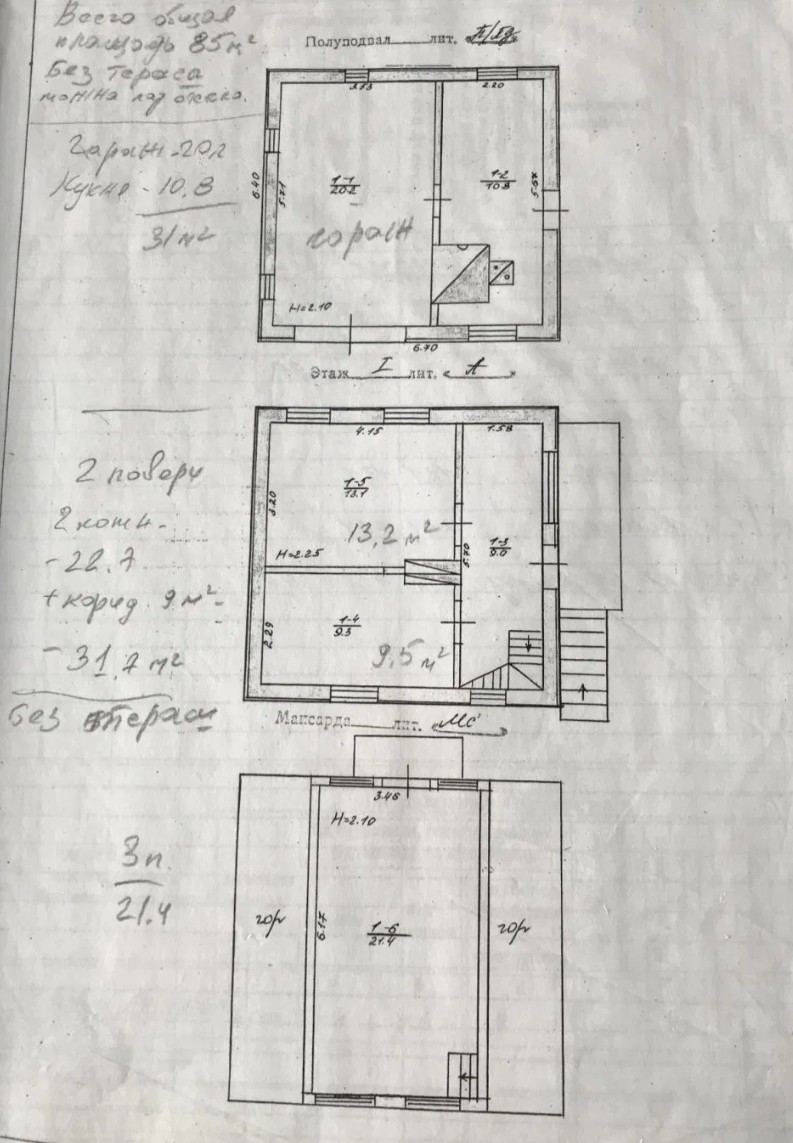 Всего общая
площадь 85 м²
Без тераса
Гараж - 20 л
Кухня - 10.8
31 м²
Полуподвал лит.
3.53 2.20
6.40
5.71
1-1
20.2
1-2
10.8
5.67
гараж
H=2.10
6.70
Этаж I лит. "А"
4.15 1.58
3.20
1-5
13.1
13,2 м²
H=2.25
5.70
1-3
9.0
2.29
1-4
9.5
9,5 м²
2 поверх
2 комн.
- 22.7
+ корид. 9 м² -
- 31,7 м²
без терасы
Мансарда лит. "Мс"
3.46
H=2.10
6.17
1-6
21.4
гор
гор
3 п.
21.4